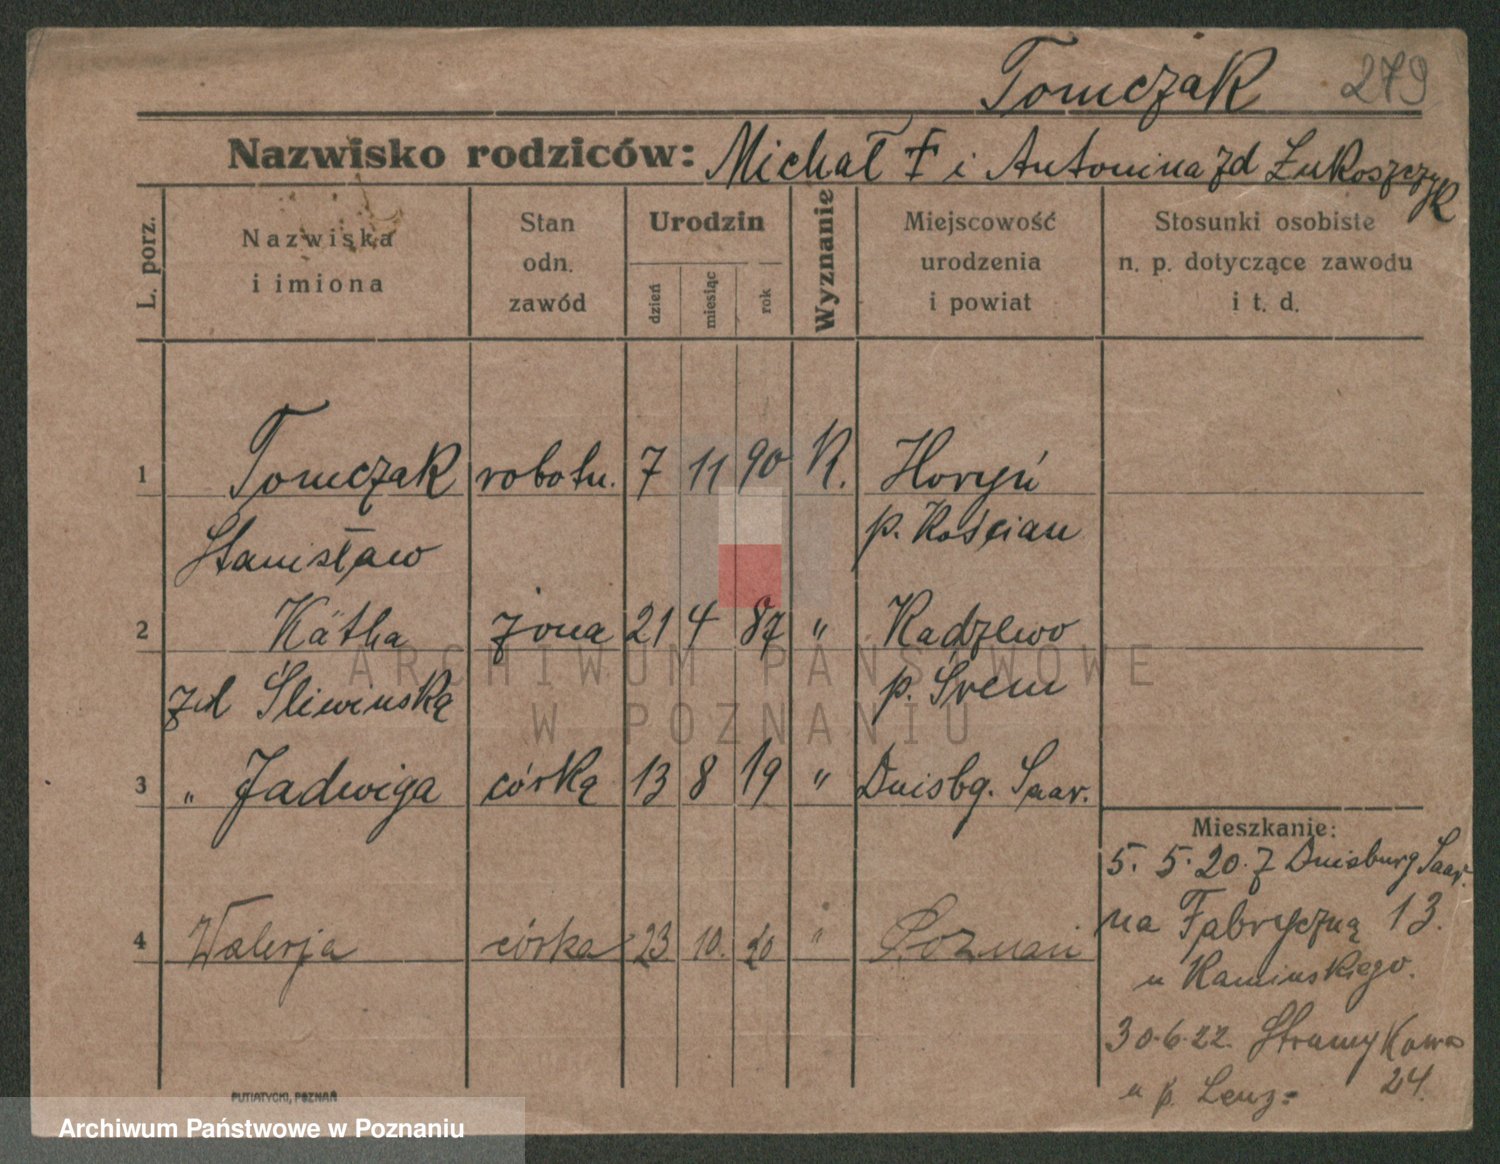 Tomczak 279
Nazwisko rodziców: Michał † i Antonina zd Łukoszczyk
L. porz.
Nazwiska
i imiona
Stan
odn.
zawód
Urodzin
dzień
miesiąc
rok
Wyznanie
Miejscowość
urodzenia
i powiat
Stosunki osobiste
n. p. dotyczące zawodu
i t. d.
1 Tomczak robotn. 7 11 90 K. Horyń
Stanisław p. Kościan
2 Kätha żona 21 4 87 " Radzewo
zd Śliwinską p. Śrem
3 " Jadwiga córką 13 8 19 " Duisbg. Saar.
4 Walerja córka 23 10. 20 " Poznań
Mieszkanie:
5. 5. 20. z Duisburg Saar.
na Fabryczną 13.
u Kaminskiego.
30.6.22. Strumykowa
u p. Lenz= 24.
PUTIATYCKI, POZNAŃ
ARCHIWUM PAŃSTWOWE
W POZNANIU
Archiwum Państwowe w Poznaniu